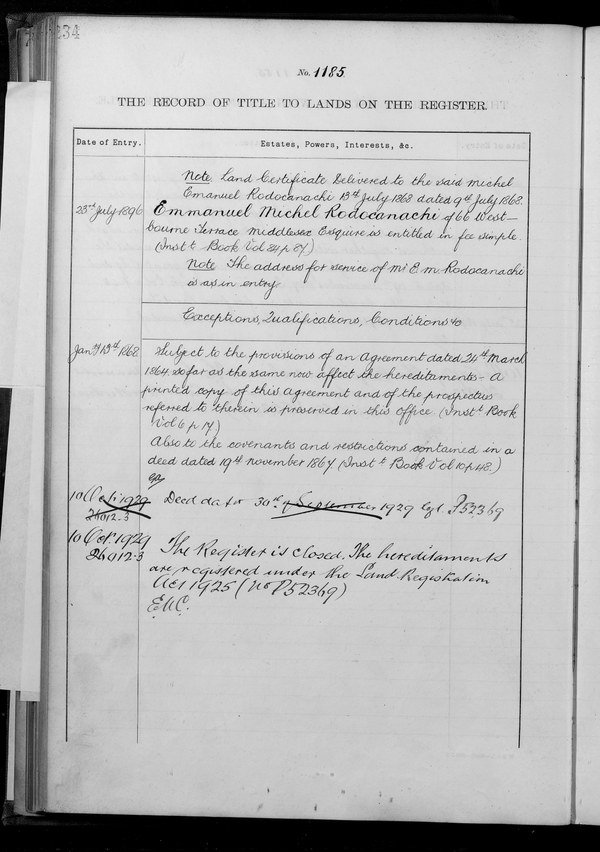 234
No. 1185.
THE RECORD OF TITLE TO LANDS ON THE REGISTER.
Date of Entry.
Estates, Powers, Interests, &c.
Note Land Certificate Delivered to the said Michel
Emanuel Rodocanachi 13th July 1868 dated 9th July 1868.
23rd July 1896
Emmanuel Michel Rodocanachi of 66 West-
bourne Terrace Middlesex Esquire is entitled in fee simple.
(Inst t Book Vol 34 p 87)
Note The address for service of Mr E. M. Rodocanachi
is as in entry
Exceptions, Qualifications, Conditions &c
Jany 13th 1868
Subject to the provisions of an Agreement dated 24th March
1864 so far as the same now affect the hereditaments - A
printed copy of this Agreement and of the prospectus
referred to therein is preserved in this office (Inst t Book
Vol 6 p 17)
Also to the covenants and restrictions contained in a
deed dated 19th November 1867 (Inst t Book Vol 10 p 48.)
10 Oct 1929
26012-3
Deed dated 30th of September 1929 P52369
10 Oct 1929
26012-3
The Register is closed. The hereditaments
are registered under the Land Registration
Act 1925 (No P52369)